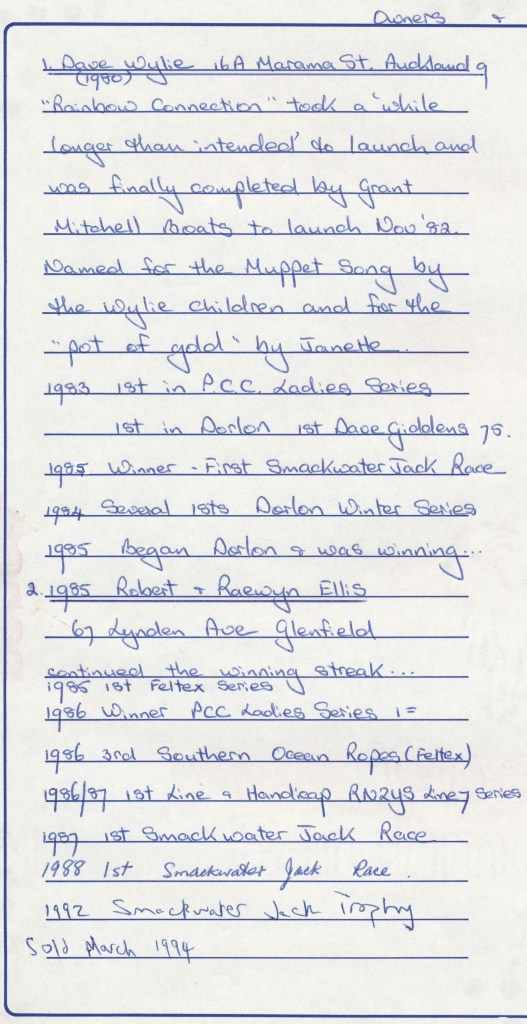 Owners &
1. Dave Wylie 16A Marama St. Auckland 9
(1980)
"Rainbow Connection" took a 'while
longer than intended' to launch and
was finally completed by Grant
Mitchell Boats to launch Nov '82.
Named for the Muppet Song by
the Wylie children and for the
"pot of gold" by Janette.
1983 1st in P.C.C. Ladies Series
1st in Dorlon 1st Dave Giddens 75.
1985 Winner - First Smackwater Jack Race
1984 Several 1sts Dorlon Winter Series
1985 Began Dorlon & was winning...
2. 1985 Robert & Raewyn Ellis
67 Lynden Ave Glenfield
continued the winning streak...
1985 1st Feltex Series
1986 Winner PCC Ladies Series 1=
1986 3rd Southern Ocean Ropes (Feltex)
1986/87 1st Line & Handicap RNZYS Line 7 Series
1987 1st Smackwater Jack Race.
1988 1st Smackwater Jack Race.
1992 Smackwater Jack Trophy
Sold March 1994